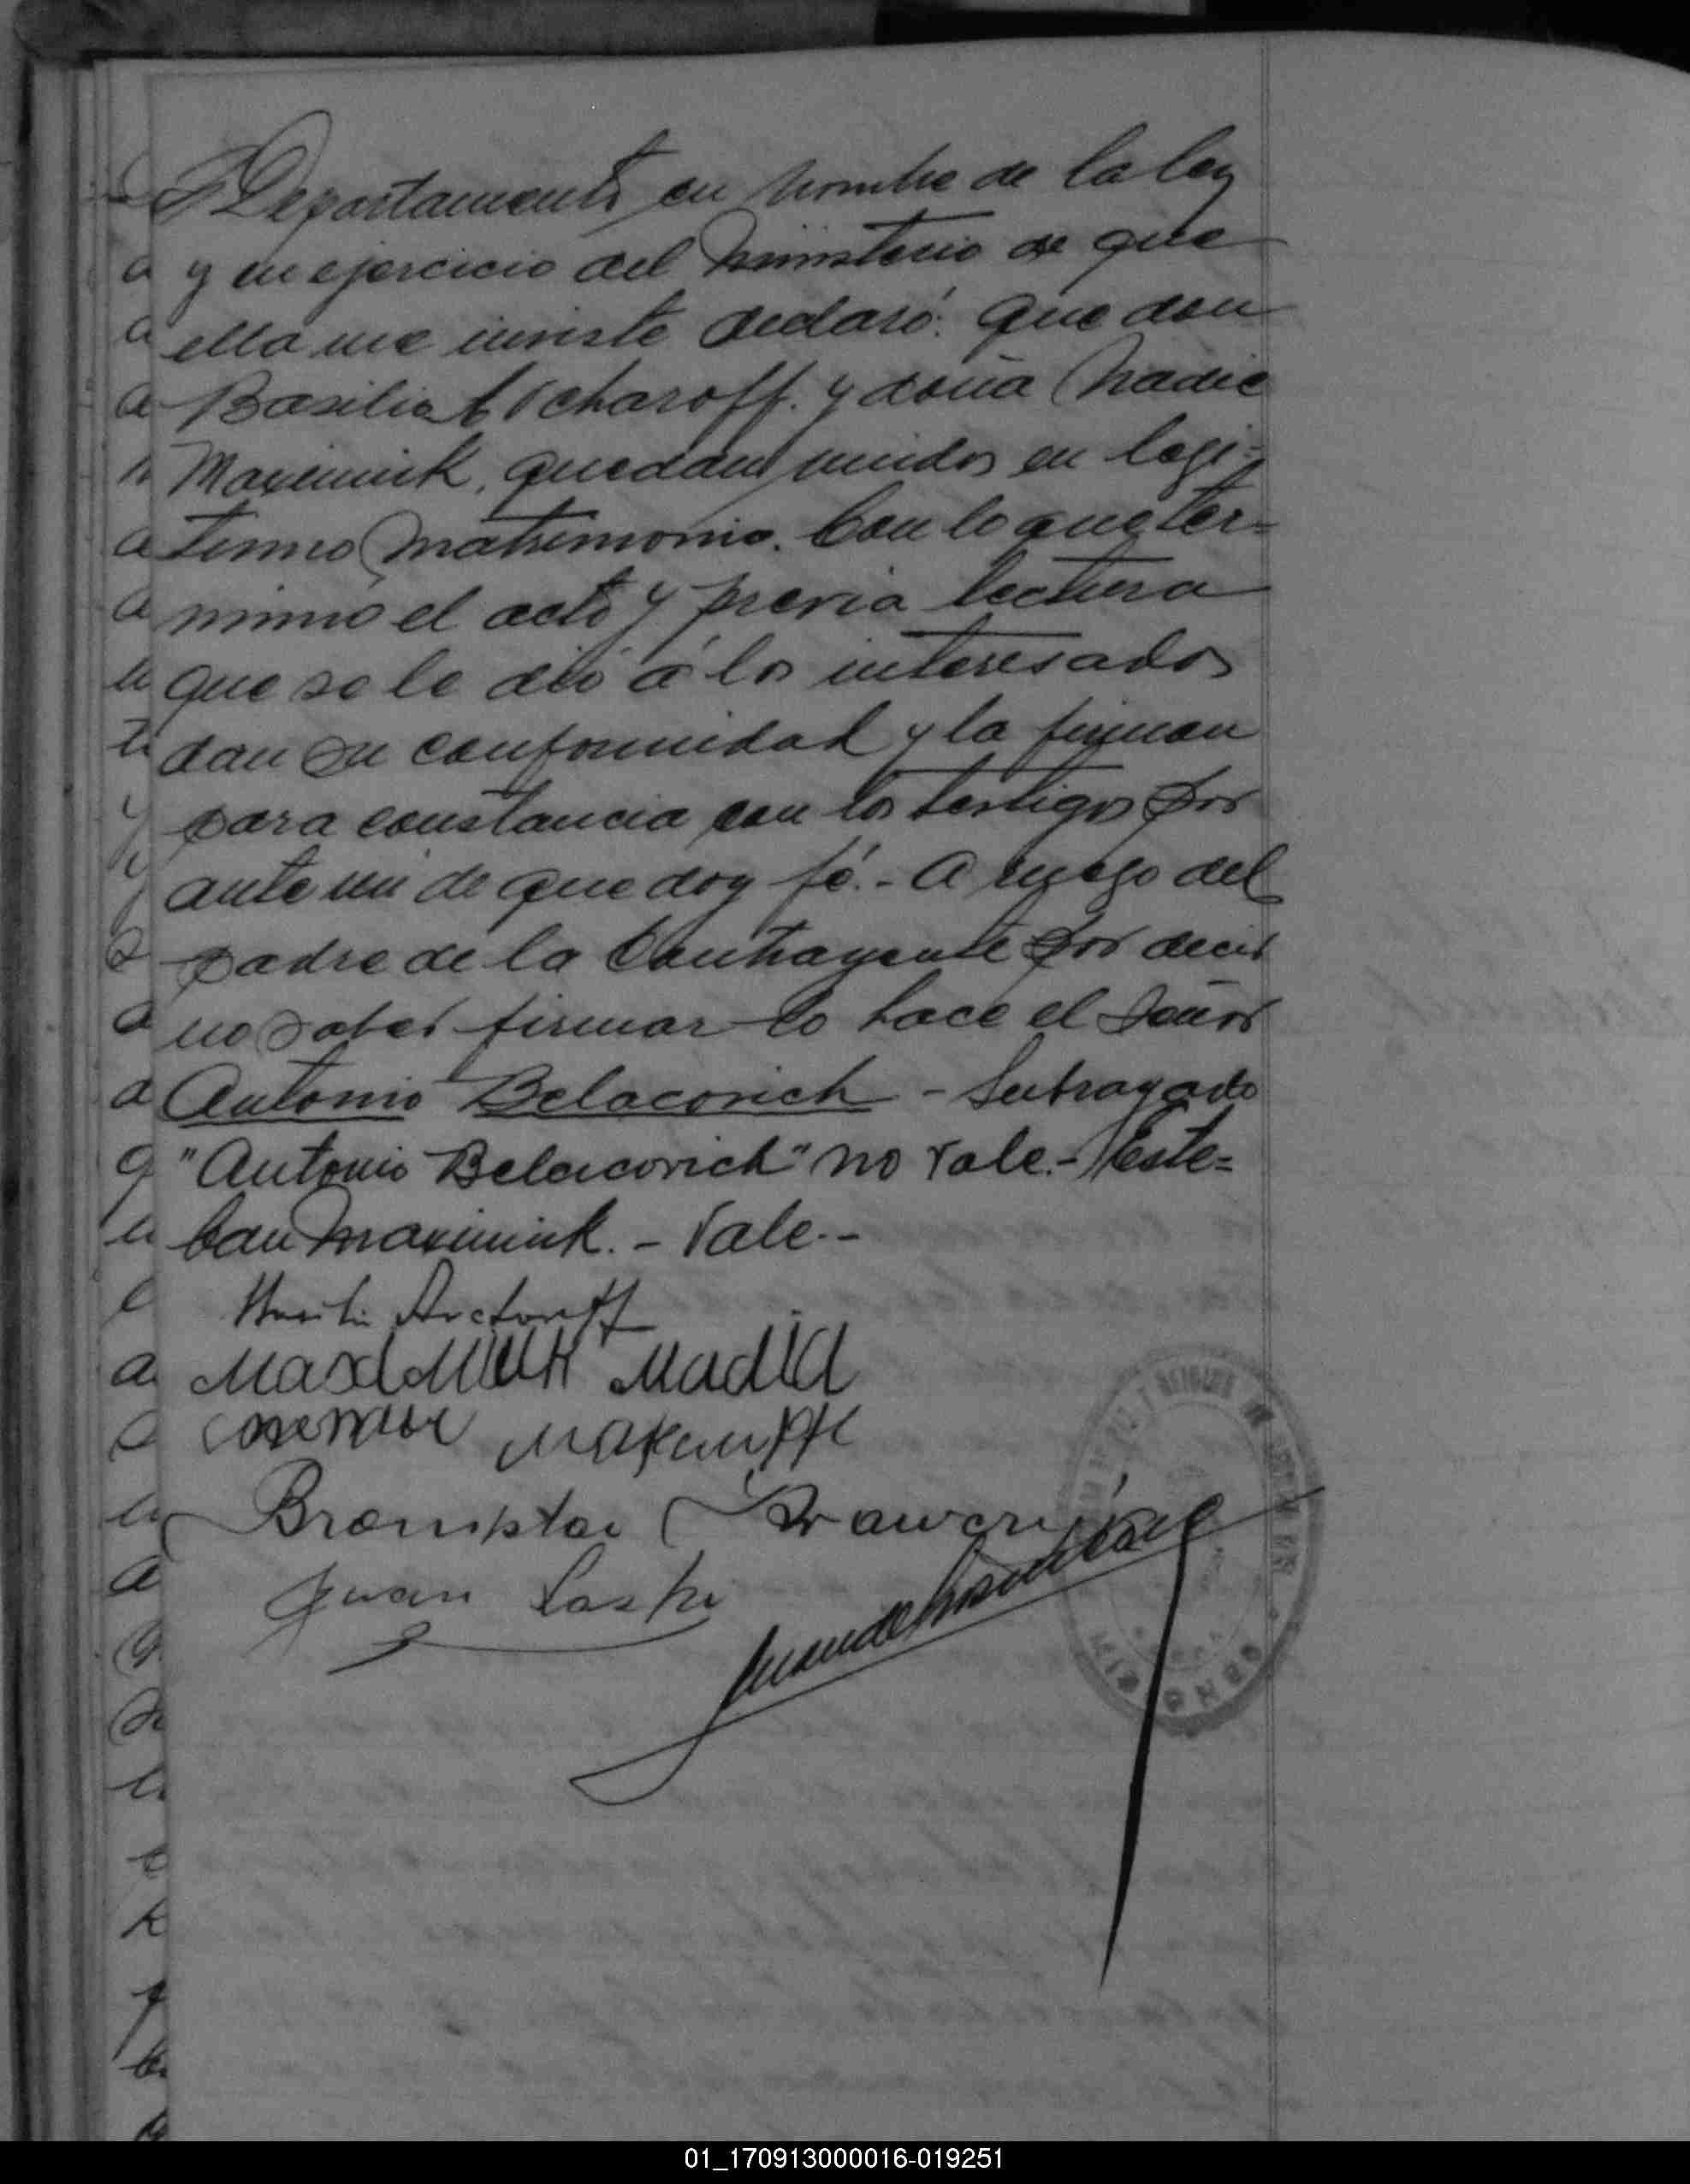 Departamento en nombre de la ley
y en ejercicio del ministerio de que
ella me inviste declaró: Que don
Basilio Ocharoff. y doña Nadie
Maximiuk, quedan unidos en legi=
timo matrimonio. Con lo que ter=
minó el acto y previa lectura
que se le dió á los interesados
dan su conformidad y la firman
para constancia con los testigos por
ante mi de que doy fé.- A ruego del
padre de la Contrayente por decir
no saber firmar lo hace el Señor
Antonio Belacovich - Subrayado
"Antonio Belacovich" no vale.- Este=
ban Maximiuk. - Vale.-
Juan
01_170913000016-019251